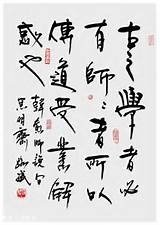 古之學者必
有師〻者所以
傳道受業解
惑也
韓愈師說句